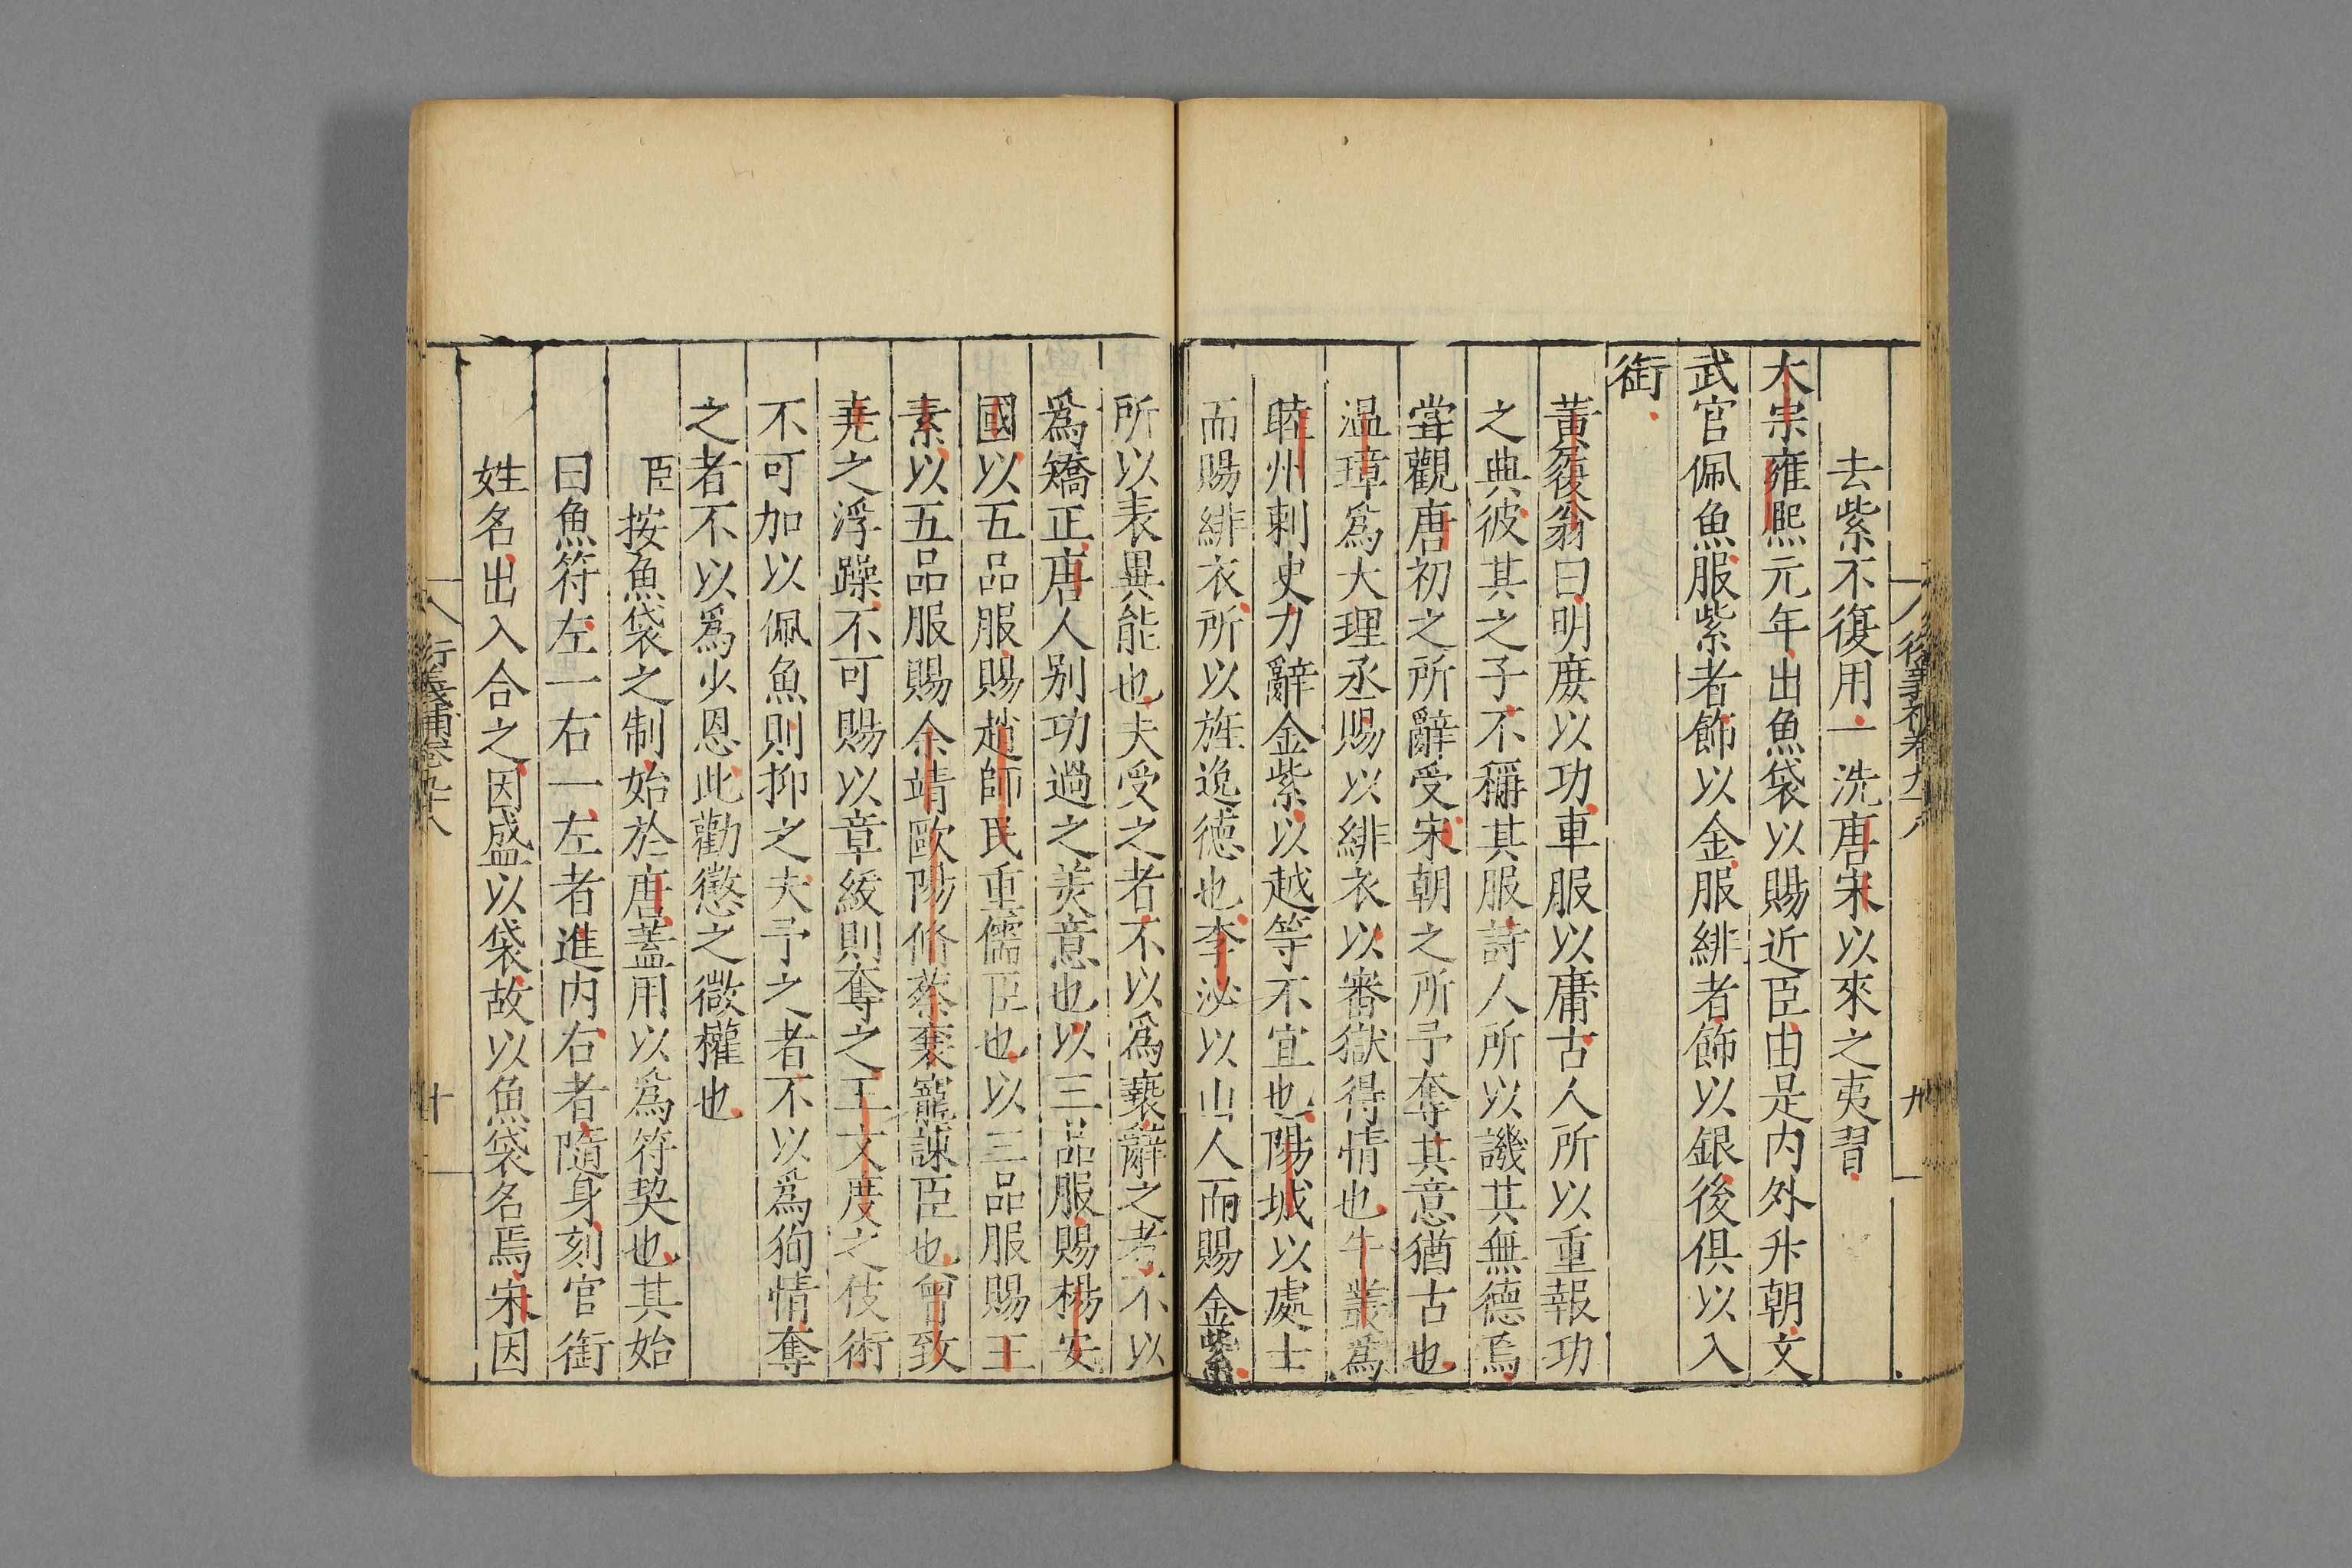 去紫不復用一洗唐宋以來之夷習
太宗雍熙元年出魚袋以賜近臣由是內外升朝文
武官佩魚服紫者飾以金服緋者飾以銀後俱以入
銜
黃復翁曰明庶以功車服以庸古人所以重報功
之典彼其之子不稱其服詩人所以譏其無德焉
嘗觀唐初之所辭受宋朝之所予奪其意猶古也
温璋爲大理丞賜以緋衣以審獄得情也牛叢爲
睦州刺史力辭金紫以越等不宜也陽城以處士
而賜緋衣所以旌逸德也李泌以山人而賜金紫
所以表異能也夫受之者不以爲䙝辭之者不以
爲矯正唐人别功過之美意也以三品服賜楊安
國以五品服賜趙師民重儒臣也以三品服賜王
素以五品服賜余靖歐陽脩蔡襄寵諫臣也曾致
堯之浮躁不可賜以章綬則奪之王文度之伎術
不可加以佩魚則抑之夫予之者不以爲狥情奪
之者不以爲少恩此勸懲之微權也
臣按魚袋之制始於唐蓋用以爲符契也其始
曰魚符左一右一左者進内右者隨身刻官銜
姓名出入合之因盛以袋故以魚袋名焉宋因
衍義補卷九十八
十